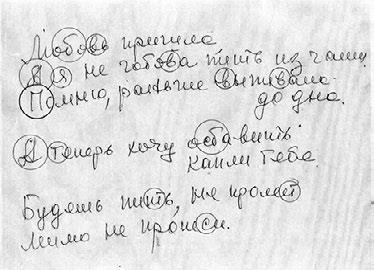 Любовь пришла
А я не готова пить из чаши.
Помню, раньше выпивала
до дна.
А теперь хочу оставить
капли тебе.
Будешь пить, не пролей
мимо не пронеси.